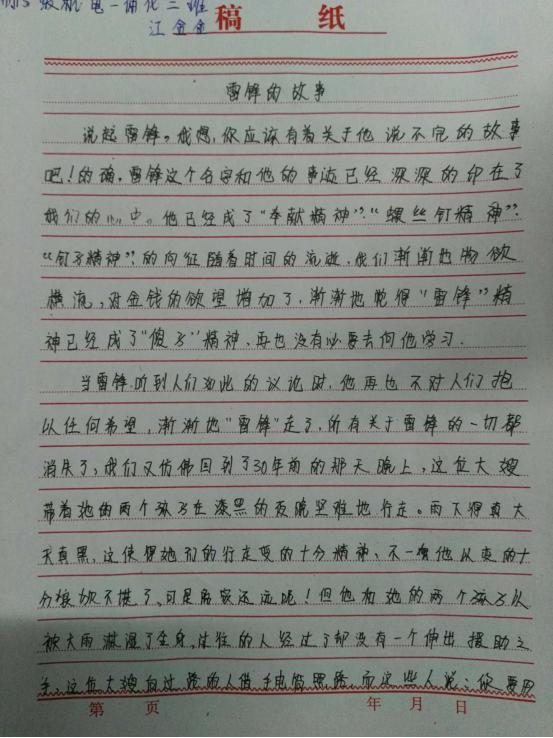 机电一体化三班
江金金
稿 纸
雷锋的故事
说起雷锋。我想,你应该有着关于他说不完的故事
吧!的确。雷锋这个名字和他的事迹已经深深的印在了
我们的心中。他已经成了“奉献精神”“螺丝钉精神”、
“钉子精神”、的向征随着时间的流逝,我们渐渐地物欲
横流,对金钱的欲望增加了,渐渐地觉得“雷锋”精
神已经成了“傻子”精神、再也没有必要去向他学习.
当雷锋听到人们如此的议论时,他再也不对人们抱
以任何希望,渐渐地“雷锋”走了,所有关于雷锋的一切都
消失了,我们又仿佛回到了30年前的那天晚上,这位大嫂
带着她的两个孩子在漆黑的夜晚坚难地行走。雨下得真大
天真黑,这使得她们的行走变的十分精神、不一会他以变的十
分 不堪了,可是离家还远呢!但他和她的两个孩子以
被大雨淋湿了全身,往往的人经过了却没有一个伸出援助之
手,这位大嫂向过路的人借手电筒照路而这些人说:你要用
第 页 年 月 日